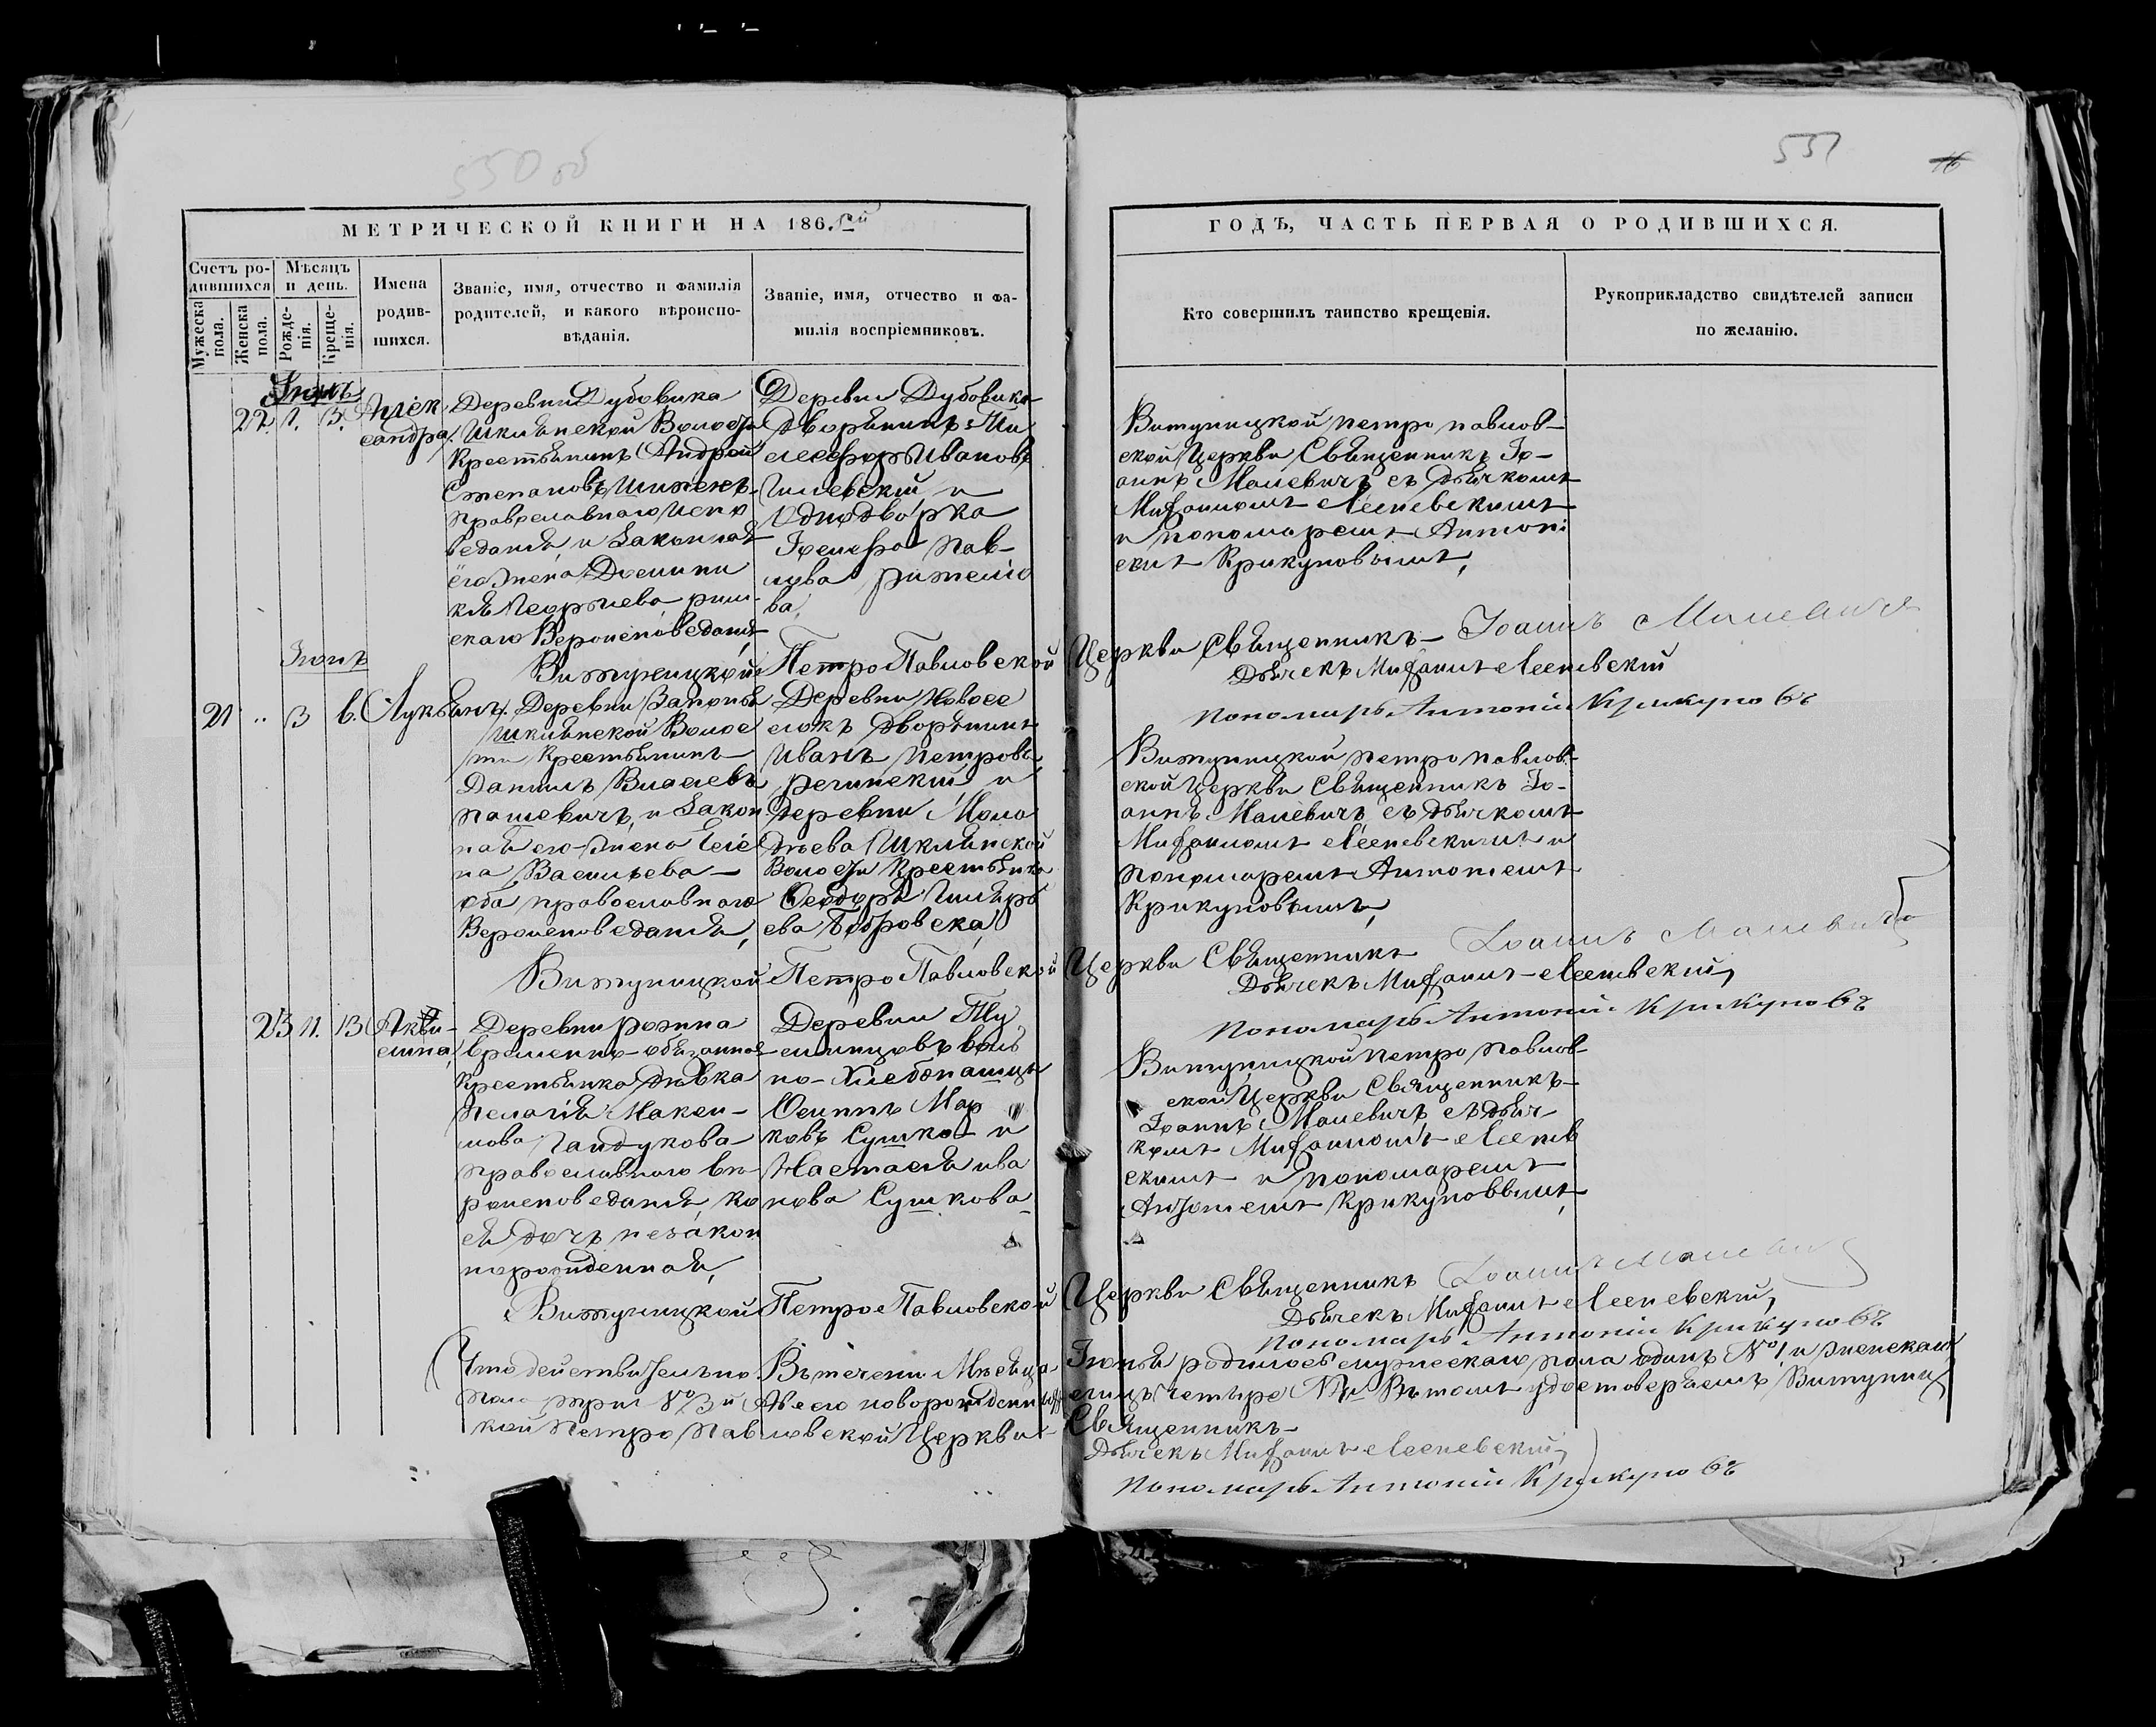 550 об
551
16
МЕТРИЧЕСКОЙ КНИГИ НА 186
ГОДЪ, ЧАСТЬ ПЕРВАЯ О РОДИВШИХСЯ.
Счетъ ро-
дившихся
Мужеска
пола.
Женска
пола.
Мѣсяцъ
и день.
Рожде-
нія.
Креще-
нія.
Имена
родив-
шихся.
Званіе, имя, отчество и фамилія
родителей, и какого вѣроиспо-
вѣданія.
Званіе, имя, отчество и фа-
милія воспріемниковъ.
Кто совершилъ таинство крещенія.
Рукоприкладство свидѣтелей записи
по желанію.
Іюнь
22. 1. 3.
Алек
сандра.
Деревни Дубовика
Шклянской Волости
Крестьянинъ Андрей
Степановъ
православнаго испо
веданія и Законная
его жена Домини
кя рим-
скаго Вероисповеданія
Деревни Дубовика
дворянинъ
Ивановъ
и
Однодворка
Пав-
лова
ва,
Витуницкой Петро Павлов-
ской Церкви Священникъ Іо-
аннъ Малевичъ съ дьячкомъ
Мифаиломъ Лесневскимъ
и пономаремъ Антоні
емъ Крикуновымъ,
Витуницкой Петро Павловской Церкви Священникъ Іоаннъ Малевичъ
Дьячекъ Мифаилъ Лесневскій
Пономарь Антоній Крикуновъ
Іюнь
21 .. 3 6. Лукьянъ.
Деревни Запонья
Шклянской Волос
ти Крестьянинъ
Даніилъ
Пашевичъ, и Закон
ная его жена Еле
на Васильева
оба православнаго
Вероисповеданія,
Деревни Новосе
локъ дворянинъ
Иванъ Петровъ
и
Деревни Моло
Шклянской
Волости Крестьянка
Феодора
ева Бобровска,
Витуницкой Петро Павлов-
ской Церкви Священникъ Іо-
аннъ Малевичъ съ дьячкомъ
Мифаиломъ Лесневскимъ и
Пономаремъ Антоніемъ
Крикуновымъ,
Витуницкой Петро Павловской Церкви Священникъ Іоаннъ Малевичъ
Дьячекъ Мифаилъ Лесневскій,
Пономарь Антоній Крикуновъ
23 11. 13
Акви-
лина,
Деревни
временно-обязанная
Крестьянка дѣвка
Пелагія Макси-
мова Гайдукова
Православнаго Вѣ-
роисповеданія, ко
ея дочь незакон
норожденная,
Деревни
воль
но-Хлебопашцы
Осипъ Мар
ковъ Сушко и
Настасія Ива
нова Сушкова
Витуницкой Петро Павлов-
ской Церкви Священникъ
Іоаннъ Малевичъ, съ дьяч-
комъ Мифаиломъ Леснев
скимъ и пономаремъ
Антоніемъ Крикуновымъ,
Витуницкой Петро Павловской Церкви Священникъ Іоаннъ Малевичъ
Дьячекъ Мифаилъ Лесневскій,
Пономарь Антоній Крикуновъ
Что действительно Въ течени Мѣсяца Іюня родилось мужескаго пола одинъ № 1 и женскаго
пола три № 3й А всего новорожденныхъ четыре Въ томъ удостоверяемъ Витуниц
кой Петро Павловской Церкви Священникъ
Дьячекъ Мифаилъ Лесневскій,
Пономарь Антоній Крикуновъ